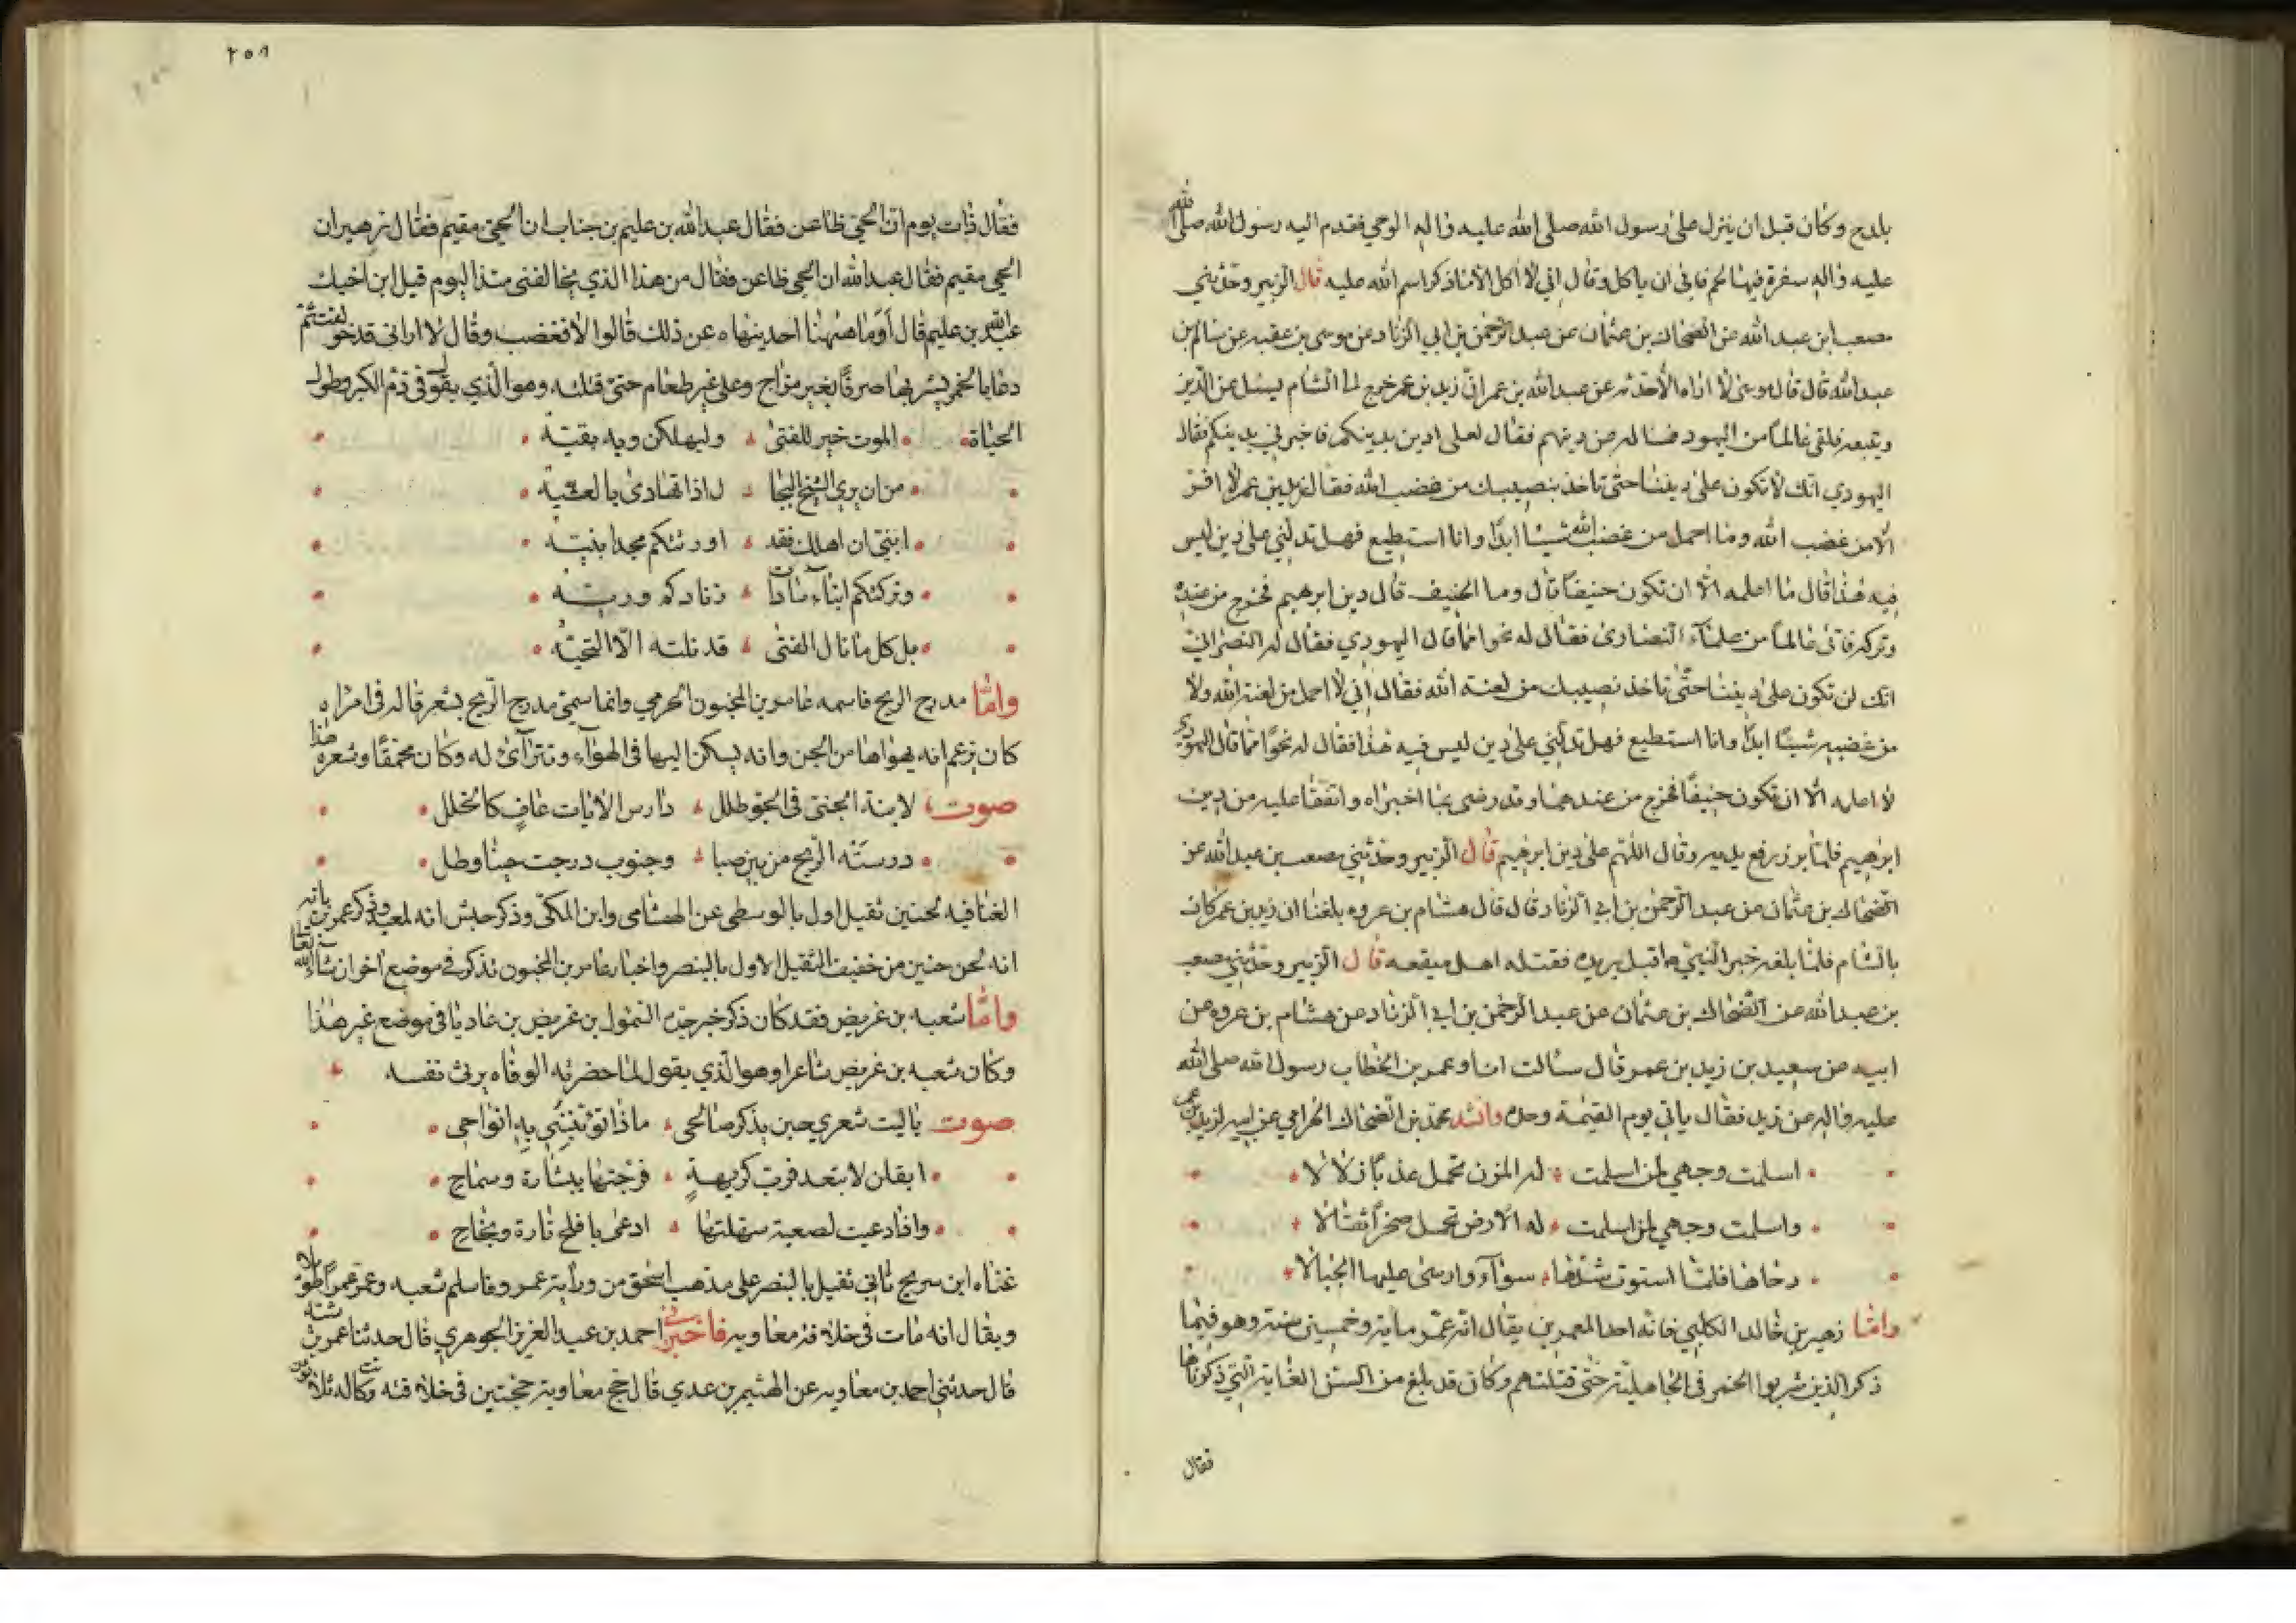 بلدح وكان قبل ان ينزل على رسول الله صلى الله عليه واله الوحي فقدم اليه رسول الله صلى الله
عليه واله سفرة فيها لحم فابى ان ياكل وقال اني لا اكل الا ما ذكر اسم الله عليه قال الزبير وحدثني
مصعب ابن عبد الله عن الضحاك بن عثمان عن عبد الرحمن بن ابي الزناد عن موسى بن عقبه عن سالم بن
عبد الله قال قال موسى لا اراه الا حدثه عن عبد الله بن عمر ان زيد بن عمر خرج الى الشام يسئل عن الدين
ويتبعه فلقى عالما من اليهود فساله عن دينهم فقال لعلى ادين بدينكم فاخبرني بدينكم فقال
اليهودي انك لا تكون على ديننا حتى تاخذ بنصيبك من غضب الله فقال زيد بن عمر لا افر
الا من غضب الله وما احمل من غضب الله شيئا ابدا وانا استطيع فهل تدلني على دين ليس
فيه هذا قال ما اعلمه الا ان تكون حنيفا قال وما الحنيف قال دين ابرهيم فخرج من عنده
وتركه فاتى عالما من علماء النصارى فقال له نحوا مما قال اليهودي فقال له النصراني
انك لن تكون على ديننا حتى تاخذ نصيبك من لعنة الله فقال اني لا احمل من لعنة الله ولا
من غضبه شيئا ابدا وانا استطيع فهل تدلني على دين ليس فيه هذا فقال له نحوا مما قال اليهودي
لا اعلمه الا ان تكون حنيفا فخرج من عندهما وقد رضى بما اخبراه واتفقا عليه من دين
ابرهيم فلما برز رفع يديه وقال اللهم على دين ابرهيم قال الزبير وحدثني مصعب بن عبد الله عن
الضحاك بن عثمان عن عبد الرحمن بن ابي الزناد قال قال هشام بن عروه بلغنا ان زيد بن عمر كان
بالشام فلما بلغه خبر النبي اقبل يريده فقتله اهل ميفعه قال الزبير وحدثني مصعب
بن عبد الله عن الضحاك بن عثمان عن عبد الرحمن بن ابي الزناد عن هشام بن عروه عن
ابيه عن سعيد بن زيد بن عمر قال سالت انا وعمر بن الخطاب رسول الله صلى الله
عليه واله عن زيد فقال ياتي يوم القيمة وحده وانشد محمد بن الضحاك الخرامي عن ابيه لزيد بن عمر
اسلمت وجهي لمن اسلمت له المزن تحمل عذبا زلالا
واسلمت وجهي لمن اسلمت له الارض تحمل صخرا ثقالا
دحاها فلما استوت شدها سواء وارسى عليها الجبالا
واما زهير بن خالد الكلبي فانه احد المعمرين يقال انه عمر ماية وخمسين سنة وهو فيما
ذكر الذين شربوا الخمر في الجاهلية حتى قتلتهم وكان قد بلغ من السن الغاية التي ذكرناها
فقال
٢٥٨
فقال ذات يوم ان الحي ظاعن فقال عبد الله بن عليم بن جناب ان الحي مقيم فقال زهير ان
الحي مقيم فقال عبد الله ان الحي ظاعن فقال من هذا الذي يخالفنى منذ اليوم قيل ابن اخيك
عبد الله بن عليم قال اوما ههنا احد ينهاه عن ذلك قالوا لا فغضب وقال لا ارانى قد خولفت ثم
دعا بالخمر يشربها صرفا بغير مزاج وعلى غير طعام حتى قتلته وهو الذي يقول فى ذم الكبر وطول
الحياة الموت خير للفتى وليهلكن وبه بقيه
من ان يري الشيخ البجا ل اذا تهادى بالعشيه
ابنى ان اهلك فقد اورثتكم مجدا بنيه
وتركتكم ابناء سادا ت زنادكم وريه
بل كل ما نال الفتى قد نلته الا التحيه
واما مدرج الريح فاسمه عامر بن المجنون الجرمي وانما سمى مدرج الريح بشعر قاله فى امراه
كان يزعم انه يهواها من الجن وانه يسكن اليها فى الهواء وتترآى له وكان محمقا وشعره هذا
صوت لابنة الجنى فى الجو طلل دارس الايات عاف كالخلل
درسته الريح من بين صبا وجنوب درجت حينا وطل
الغنا فيه لحنين ثقيل اول بالوسطى عن الهشامى وابن المكى وذكر حبش انه لمعبد وذكر عمر بن بانه
انه لحن حنين من خفيف الثقيل الاول بالبنصر واخبار عامر بن المجنون تذكر في موضع اخر ان شاء الله تعالى
واما شعبه بن غريض فقد كان ذكر خبر جده السمول بن غريض بن عاديا في موضع غير هذا
وكان شعبه بن غريض شاعرا وهو الذي يقول لما حضرته الوفاه يرثى نفسه
صوت ياليت شعري حين يذكر صالحى ماذا تؤبننى به انواحى
ايقلن لا تبعد فرب كريهة فرجتها ببشارة وسماح
واذا دعيت لصعبة سهلتها ادعى بافلح تارة ونجاح
غناه ابن سريج ثاني ثقيل بالبنصر على مذهب اسحق من رواية عمرو واسلم شعبه وعمر عمرا طويلا
ويقال انه مات في خلافه معاويه فاخبرني احمد بن عبد العزيز الجوهري قال حدثنا عمر بن شبه
قال حدثني احمد بن معاويه عن الهيثم بن عدي قال حج معاوية حجتين فى خلافته وكانت له ثلاثون